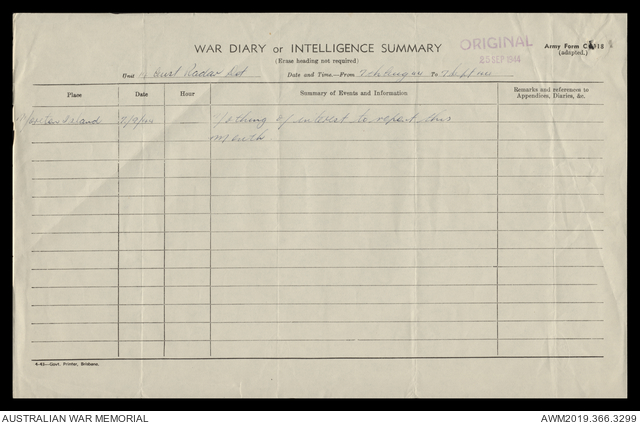 WAR DIARY or INTELLIGENCE SUMMARY
(Erase heading not required)
ORIGINAL
25 SEP 1944
Army Form C.
(adapted.)
Unit Aust Radar Det Date and Time.—From to
Place Date Hour Summary of Events and Information Remarks and references to Appendices, Diaries, &c.
Moreton Island 7/9/44 — Nothing of interest to report this
month
4-43—Govt. Printer, Brisbane.
AUSTRALIAN WAR MEMORIAL AWM2019.366.3299